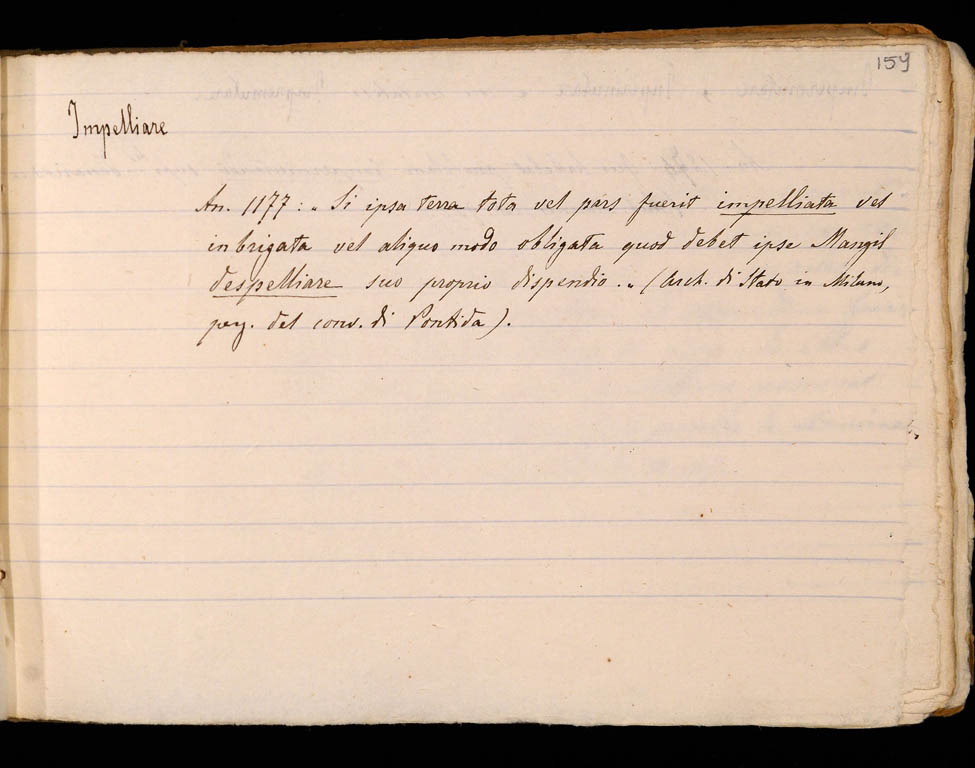 159
Impelliare
An. 1177: „ Si ipsa terra tota vel pars fuerit impelliata vel
inbrigata vel aliquo modo obligata quod debet ipse Mangil
despelliare suo proprio dispendio. „ (Arch. di Stato in Milano,
perg. del conv. di Pontida).